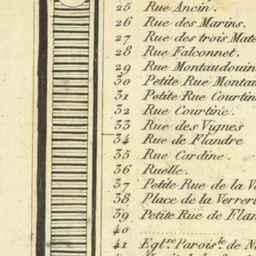 25 Rue Ancin.
26 Rue des Marins.
27 Rue des trois Mate
28 Rue Falconnet.
29 Rue Montaudouin
30 Petite Rue Montau
31 Petite Rue Courtin
32 Rue Courtine.
33 Rue des Vignes
34 Rue de Flandre
35 Rue Cardine.
36 Ruelle.
37 Petite Rue de la V
38 Place de la Verreri
39 Petite Rue de Flan
40
41 Egl.se Parois.le de N